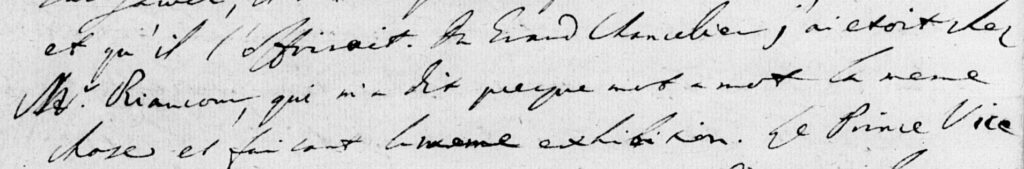 et qu'il l'offrirait. Du Grand Chancelier j'ai etoit chez
Mr. Riancour, qui m'a dit presque mot a mot la meme
chose et faisant la meme exhibition. Le Prince Vice